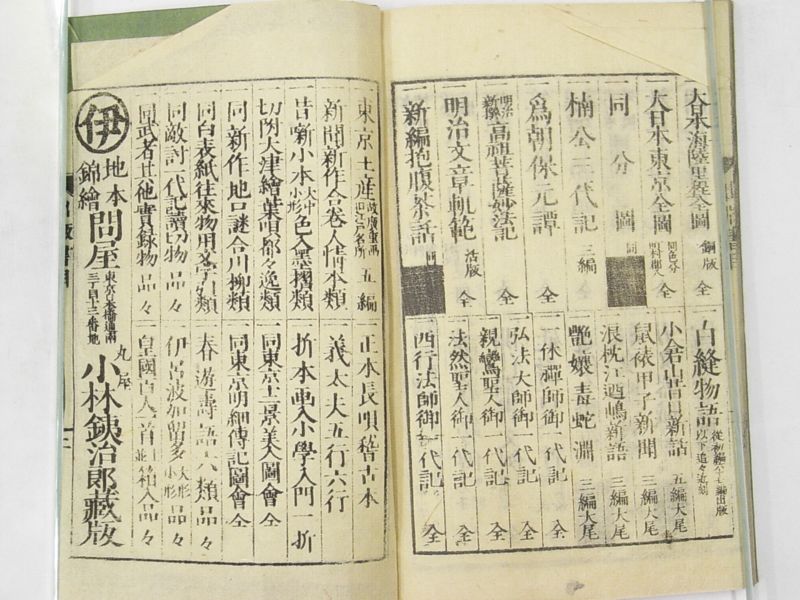 大日本海陸里程全圖 銅版 全
大日本東京全圖 同色分 町村郡入 全
同 分圖 同
楠公三代記 三編
為朝保元譚 全
高祖菩薩妙法記 全
明治文章軌範 活版 全
新編抱腹茶話 初
白縫物語 從初編六十七編出版 以下追々近刻
小倉山昔日新話 五編大尾
鼠裱甲子新聞 三編大尾
浪枕江廼嶋新語 三編大尾
艷孃毒蛇淵 三編大尾
一休禪師御一代記 全
弘法大師御一代記 全
親鸞聖人御一代記 全
法然聖人御一代記 全
西行法師御一代記 全
東京土産 五編
新聞新作合卷人情本類
昔噺小本 大中小形 色入墨摺類
切附大津繪葉唄都々逸類
同新作地口謎合川柳類
同白表紙往來物用文字引類
同敵討一代記讀切物 品々
同武者其他實録物 品々
正本長唄稽古本
義太夫五行六行
折本画入小學入門一折
同東京十二景美人圖會 全
同東京明細傳記圖會 全
春遊壽語六類 品々
伊呂波加留多 大形小形 品々
皇國百人一首並箱入品々
伊
地本
錦繪
問屋
東京日本橋通
三丁目十三番地
丸屋
小林銕治郎藏版